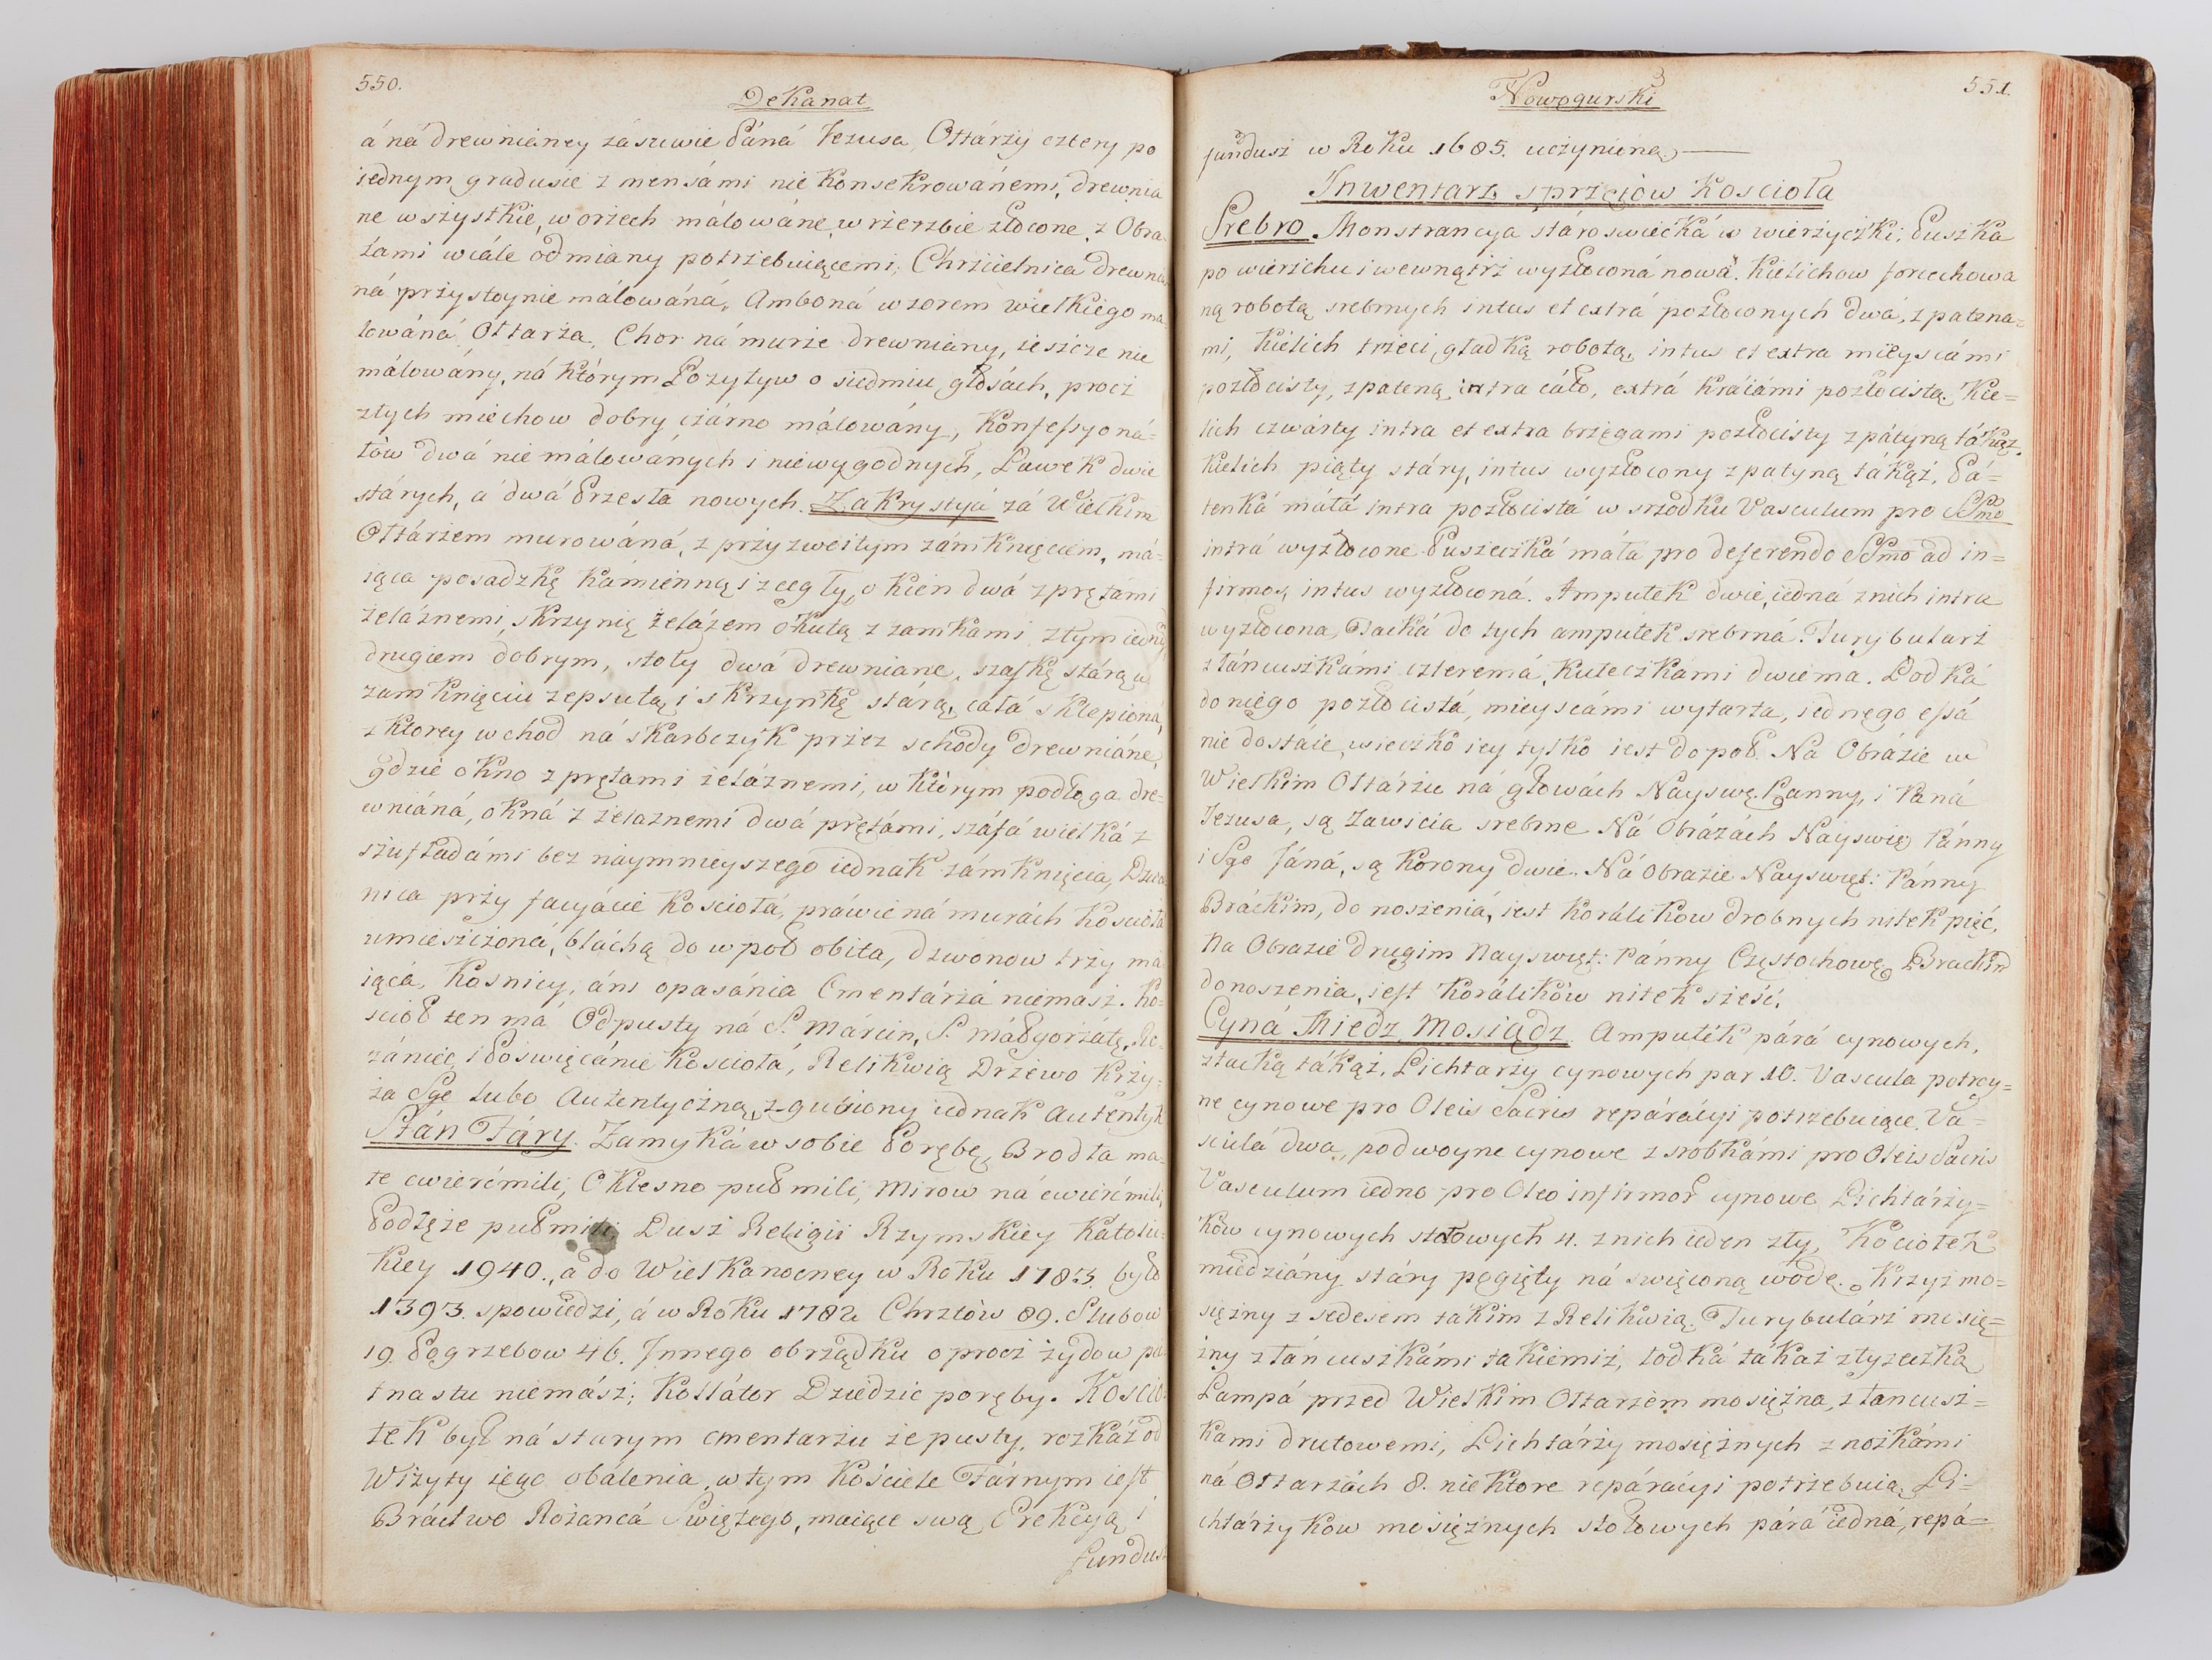 550.
Dekanat
á ná drewnianey zásuwie Páná Jezusa, Ołtárzy cztery po
iednym gradusie z mensámi nie konsekrowánemi, drewnia
ne wszystkie, w orzech málowáne, w rzezbie złocone, z Obra
zami wcále odmiany potrzebuiącemi, Chrzcielnica drewnia
ná przystoynie málowáná, Amboná wzorem wielkiego ma=
lowáná Ołtarza, Chor ná murze drewniany, ieszcze nie
málowány, ná którym Pozytyw o siedmiu głosách, procz
złych miechow dobry czárno málowány, Konfessyoná=
łów dwá nie málowánych i niewygodnych, Ławek dwie
stárych, á dwá Krzesła nowych. Zakrystyá zá Wielkim
Ołtárzem murowáná, z przyzwoitym zámknięciem, má=
iąca posadzkę kámienną i z cegły, okien dwá z prętámi
żeláznemi, skrzynię żelázem okutą z zamkámi złym iednym
drugiem dobrym, stoły dwá drewniane, szafkę stárą w
zamknięciu zepsutą i skrzynkę stárą, całá sklepioná,
z ktorey wchod ná skarbczyk przez schody drewniáne,
gdzie okno z prętami żeláznemi, w którym podłoga dre=
wniáná, okná z żelaznemi dwá prętámi, száfá wielká z
szufládámi bez naymnieyszego iednák zámknięcia, Dzwo
nica przy facyácie Kościołá, práwie ná murách Kościoła
umieszczoná, bláchą do w poł obita, dzwonow trzy má
iącá, Kosnicy, áni opasánia Cmentárzá niemasz. Ko=
scioł ten má Odpusty ná S. Márcin, S. Máłgorzátę, Ro=
żániec, i Poswięcánie Kościołá, Relikwią Drzewo Krzy=
ża Sgo lubo Autentyczną, zgubiony iednak Autentyk
Stán Fáry. Zamyká w sobie Porębę, Brodła ma=
łe cwierć mili, Okleśno puł mili, Mirow ná cwierć mili,
Podłęże puł mili, Dusz Religii Rzymskiey Katolic=
kiey 1940., a do Wielkanocney w Roku 1783. było
1393. spowiedzi, á w Roku 1782 Chrztów 89. Slubow
19. Pogrzebow 46. Innego obrządku oprocz żydow pię
tnastu niemász; Kollátor Dziedzic poręby. Koscio
łek był ná starym cmentarzu że pusty, rozkáz od
Wizyty iego obálenia, w tym Kościele Fárnym iest
Bráctwo Rożancá Swiętego, maiące swą Erekcyą i
fundusz
Nowogurski
551.
fundusz w Roku 1685. uczyniony
Inwentarz sprzętów Kościoła
Srebro. Monstrancya stároswiecká w wierzyczki, Puszka
po wierzchu i wewnątrz wyzłoconá nowá. Kielichow forcechowa
ną robotą srebrnych intus et extrá pozłoconych dwá, z patena=
mi, Kielich trzeci, gładką robotą, intus et extra mieyscámi
pozłocisty, z pateną intra cáło, extrá kráiámi pozłocistą. Kie=
lich czwárty intra et extra brzegami pozłocisty z pátyną tákąż.
Kielich piąty stáry, intus wyzłocony z patyną tákąż, Pá=
tenká máłá intra pozłocistá w srzodku Vasculum pro SSmo
intrá wyzłocone. Puszeczká máła pro deferendo SSmo ad in=
firmos, intus wyzłoconá. Ampułek dwie, iedná z nich intra
wyzłocona, Tacká do tych ampułek srebrná. Turybularz
z łáncuszkámi czteremá, kuleczkami dwiema. Łodká
do niego pozłocistá, mieyscámi wytarta, iednego essá
nie dostaie, wieczko iey tylko iest do poł. Na Obrázie w
Wielkim Ołtárzu ná głowách Nayswę. Panny, i Páná
Jezusa, są Zawicia srebrne Ná Obrázách Nayswię Pánny
i Sgo Jáná, są korony dwie. Ná Obrazie Nayswięt: Pánny
Bráckim, do noszenia, iest koralikow drobnych nitek pięć.
Na Obrazie drugim Nayswięt: Pánny Częstochows. Brackim
do noszenia, iest korálików nitek sześć.
Cyná Miedz Mosiądz. Ampułek párá cynowych,
z tacką tákąż. Lichtarzy cynowych par 10. Vascula potroy=
ne cynowe pro Oleis Sacris repárácyi potrzebuiące. Va=
sculá dwa, podwoyne cynowe z srobkámi pro Oleis Sacris
Vasculum iedno pro Oleo infirmor cynowe Lichtárzy=
ków cynowych stołowych 4. z nich ieden zły, Kociołek
miedziány stáry pogięty ná swięconą wodę. Krzyż mo=
siężny z sedesem takim z Relikwią. Turybulárz mosię=
żny z łáncuszkámi takiemiż, łodká tákaż z łyzeczką
Lampá przed Wielkim Ołtarzem mosiężna, z łancusz=
kámi drutowemi, Lichtárzy mosiężnych z nożkámi
ná Ołtarzách 8. niektore repárácyi potrzebuią. Li=
chtárzykow mosiężnych stołowych párá iedná, repá=